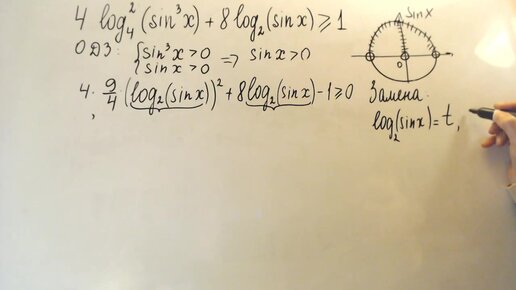 4 log₄²(sin³x) + 8 log₂(sin x) ⩾ 1
ОДЗ: { sin³x > 0
sin x > 0 => sin x > 0
4 · 9/4 (log₂(sin x))² + 8 log₂(sin x) - 1 ⩾ 0
,
sin x
0
Замена:
log₂(sin x) = t,